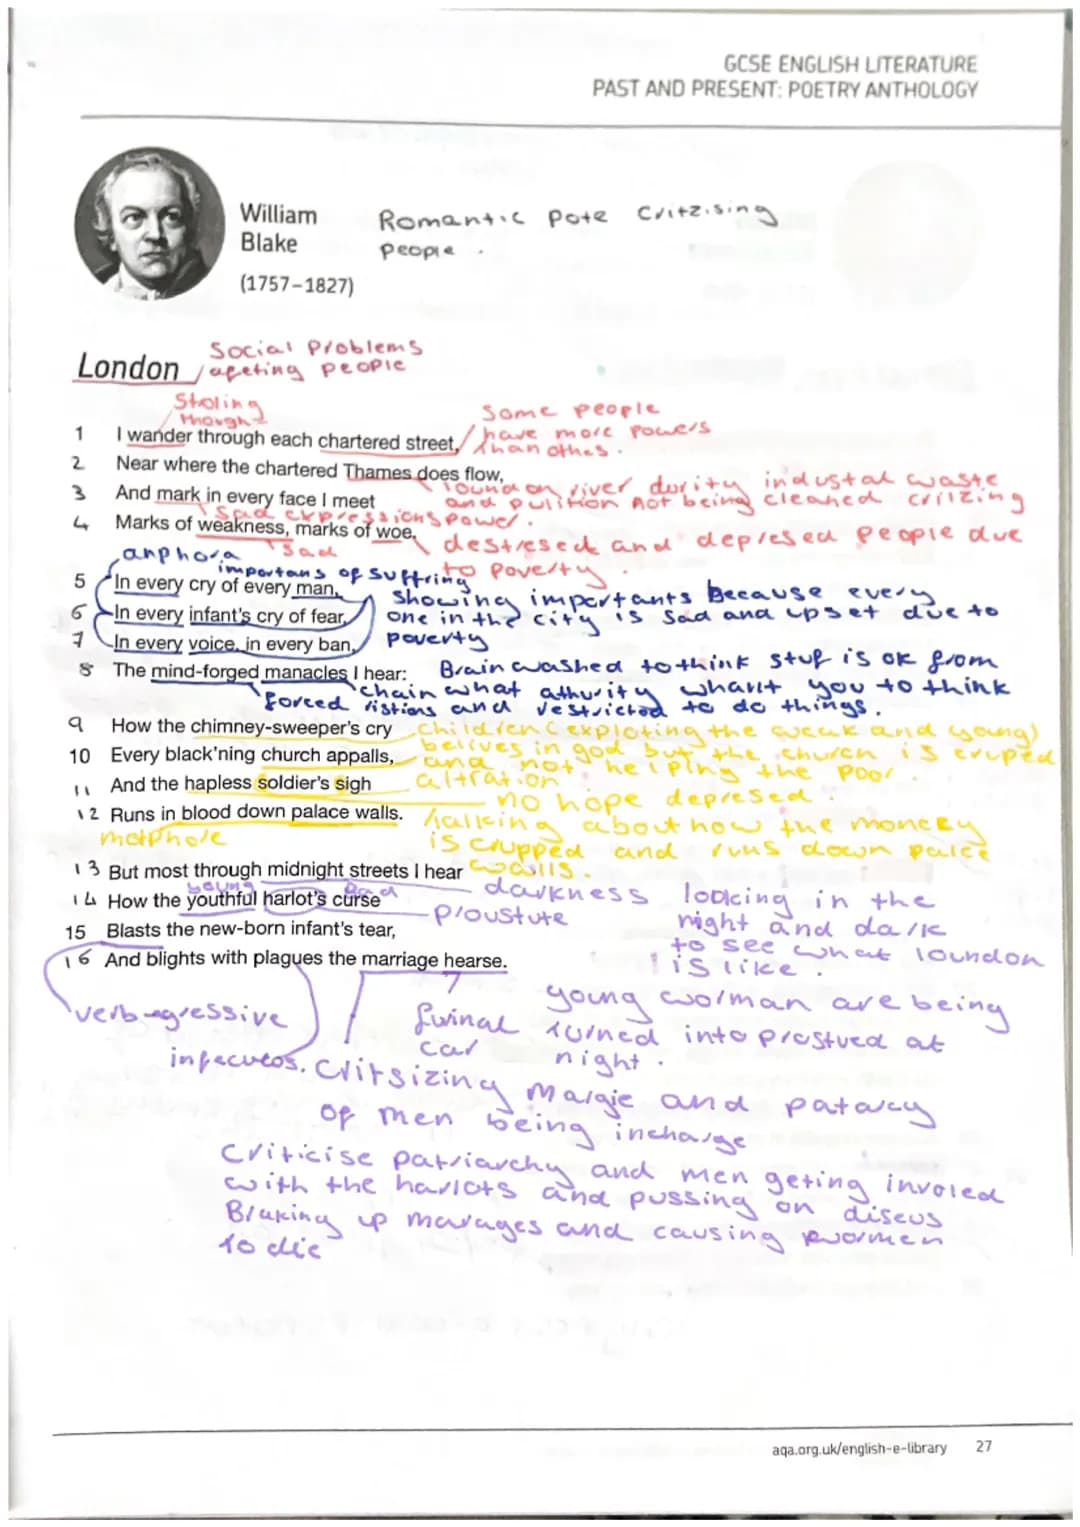 GCSE ENGLISH LITERATURE
PAST AND PRESENT: POETRY ANTHOLOGY
William
Blake
(1757–1827)
Romantic Pote Critzising
People .
London
Social Problems
afeting people
Stroling
through
Some people
have more Powers
than othes .
1 I wander through each chartered street,
2 Near where the chartered Thames does flow,
loundon river durity industal waste
3 And mark in every face I meet
and pulition not being cleaned critizing
Sad expressions power.
4 Marks of weakness, marks of woe.
destresed and depresed people due
to Poverty .
anphora
Sad
importans of Suffring
5 In every cry of every man,
Showing importants Because every
6 In every infant's cry of fear,
one in the city is sad and upset due to
7 In every voice, in every ban,
poverty
8 The mind-forged manacles I hear:
Brain washed to think stuf is ok from
chain what athurity whant you to think
forced ristions and restricted to do things.
9 How the chimney-sweeper's cry
children (exploting the weak and young)
10 Every black'ning church appalls,
belives in god but the church is eruped
and not helping the poor.
11 And the hapless soldier's sigh
altration
no hope depresed .
12 Runs in blood down palace walls.
talking about how the moncey
motphore
is crupped and runs down palce
walls .
13 But most through midnight streets I hear
darkness looking in the
young
Bad
14 How the youthful harlot's curse
proustute
night and dark
15 Blasts the new-born infant's tear,
to see what loundon
is like .
16 And blights with plagues the marriage hearse.
verb agressive
fuinal
car
young wolman are being
turned into prostued at
night .
infecutos.
Critsizing Margie and patarcy
of men being incharge
Criticise patriarchy and men geting involed
with the harlots and pussing on diseus
Braking up marages and causing women
to die
aqa.org.uk/english-e-library 27